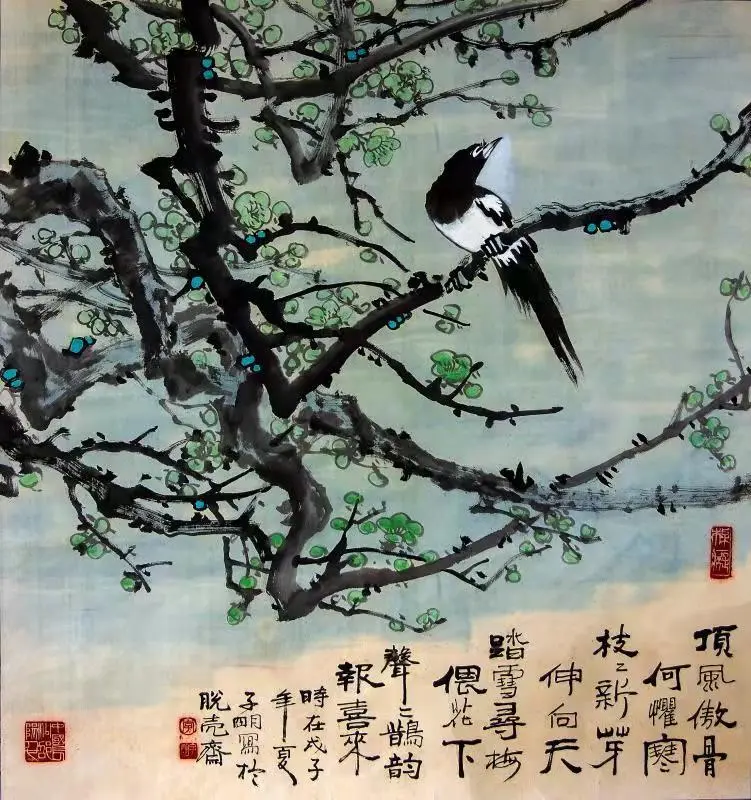 頂風傲骨
何懼寒
枝〻新芽
伸向天
踏雪尋梅
偎花下
聲〻鵲韵
報喜來
時在戊子
年夏
子明寫於
脫壳齋